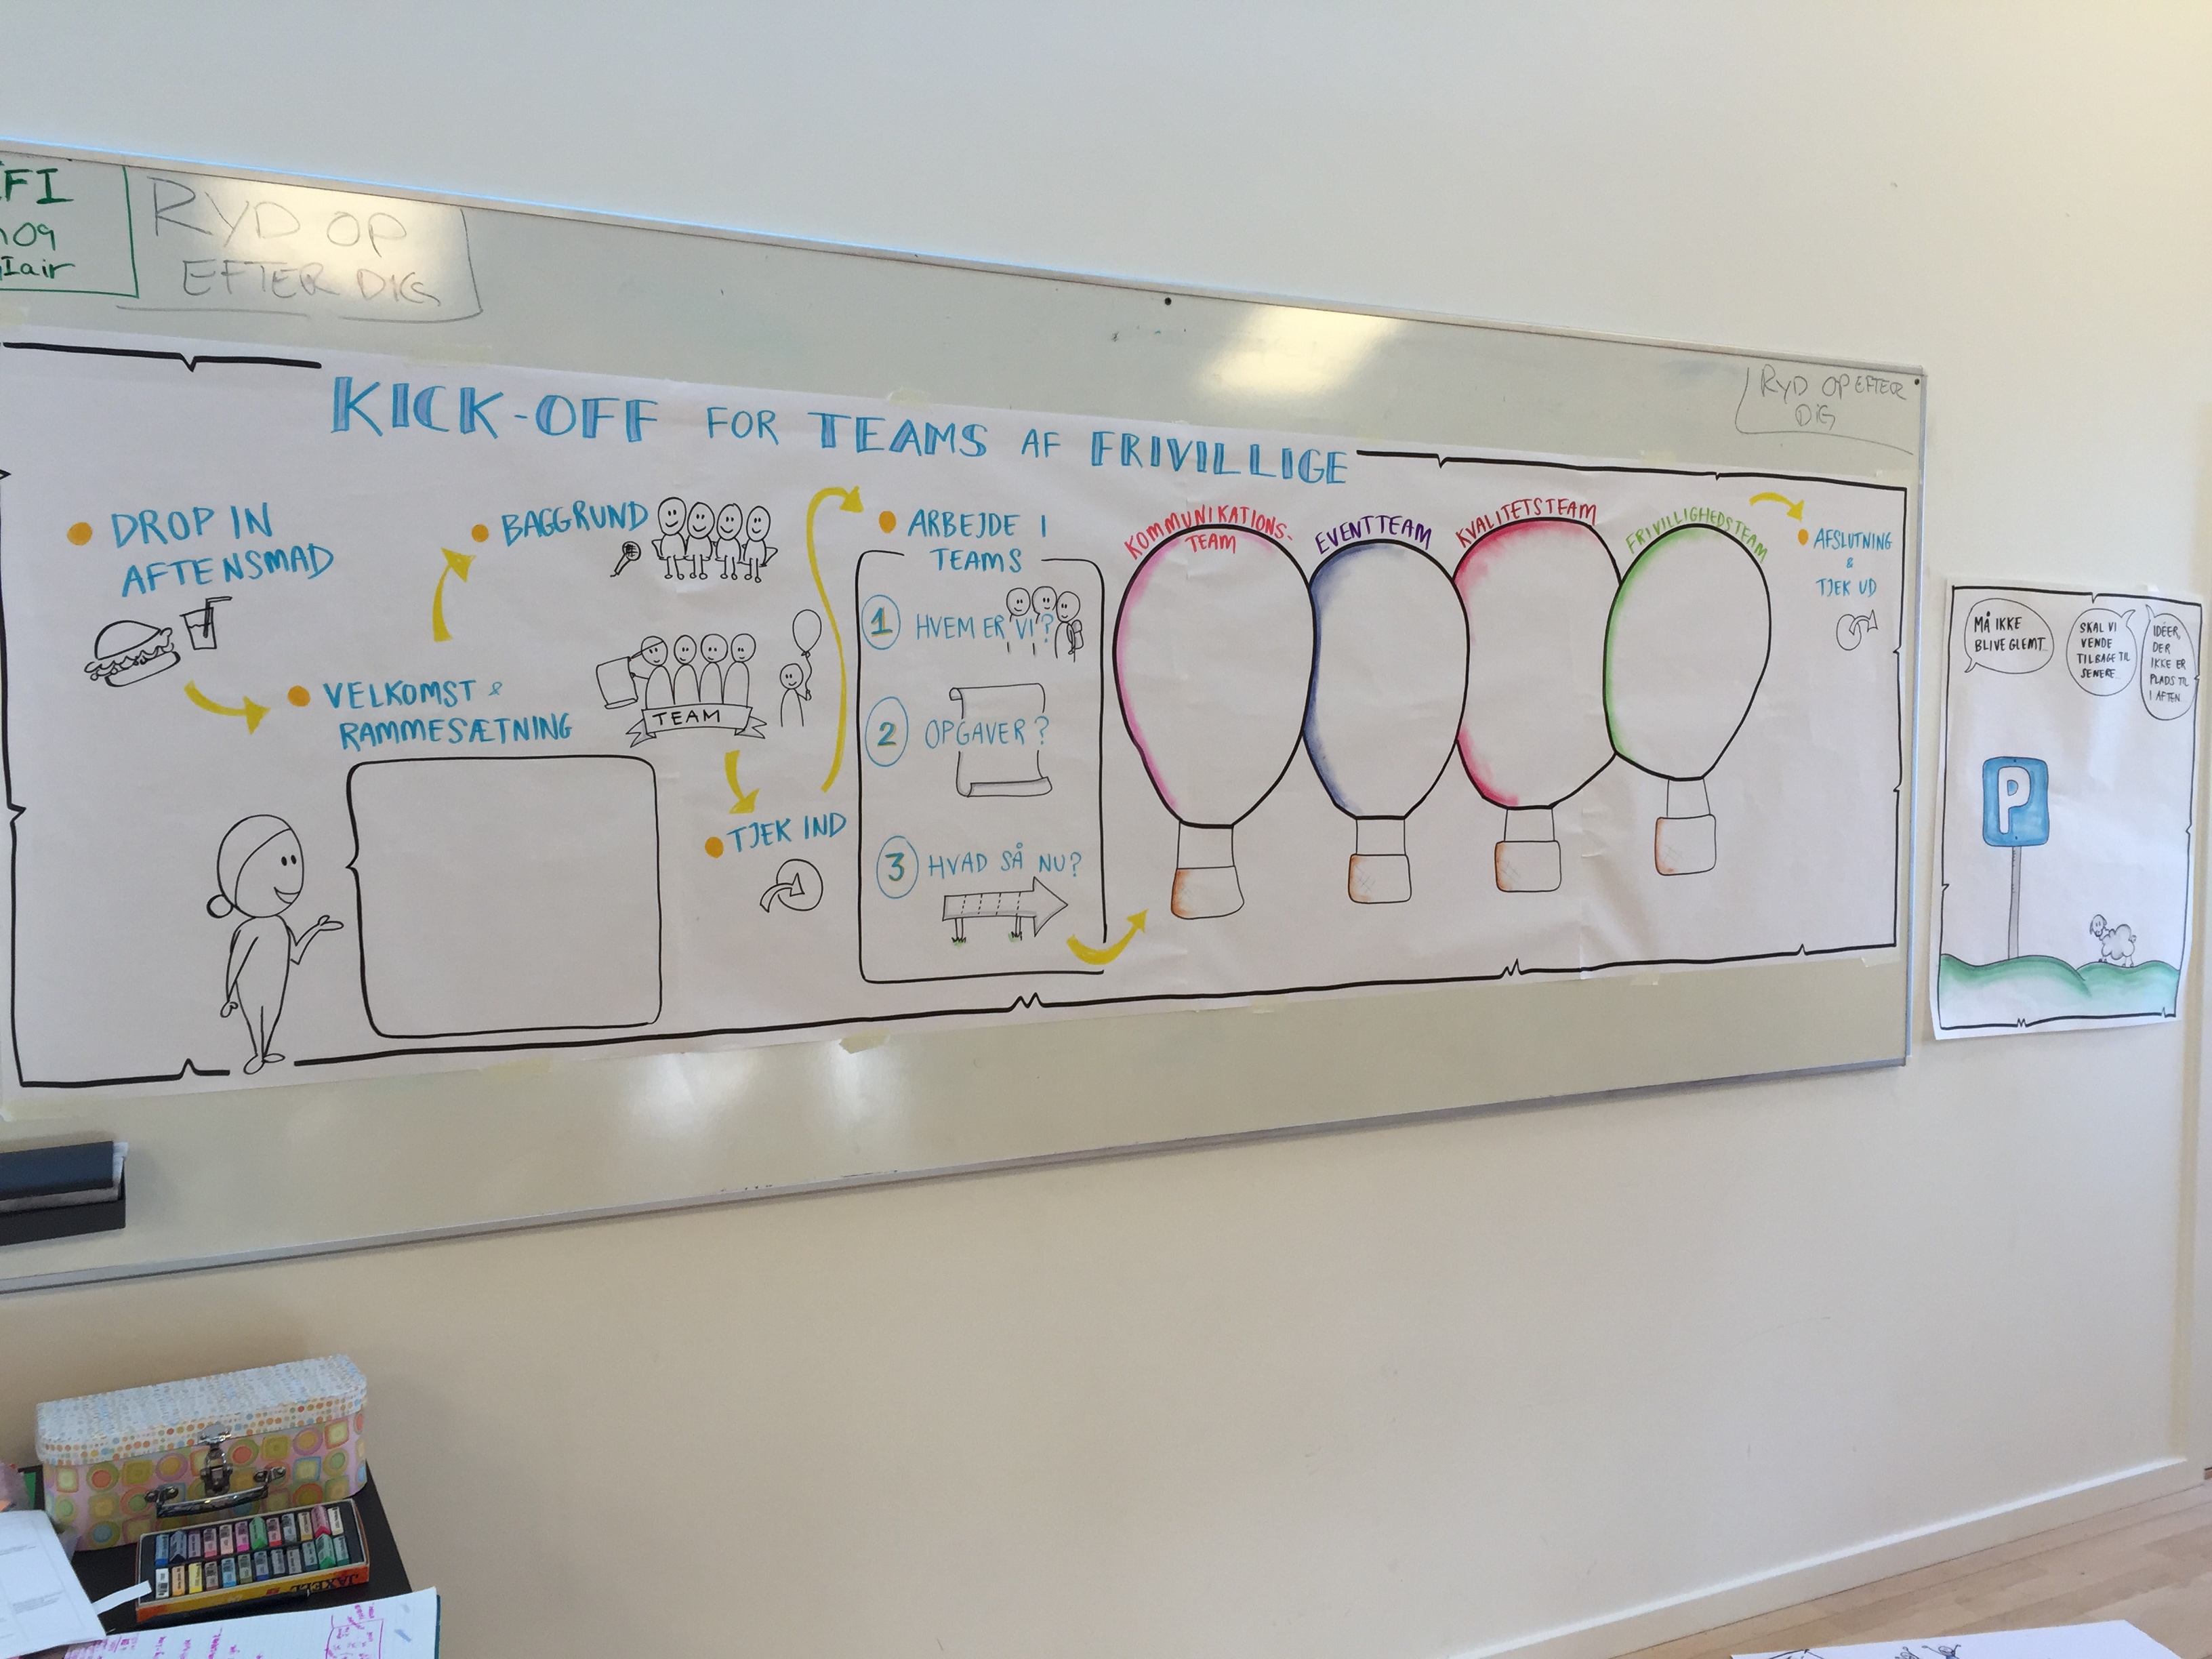 FI
RYD OP
EFTER DIG
RYD OP EFTER
DIG
KICK-OFF FOR TEAMS AF FRIVILLIGE
DROP IN
AFTENSMAD
VELKOMST &
RAMMESÆTNING
BAGGRUND
TEAM
TJEK IND
ARBEJDE I
TEAMS
1 HVEM ER VI?
2 OPGAVER?
3 HVAD SÅ NU?
KOMMUNIKATIONS-
TEAM
EVENTTEAM
KVALITETSTEAM
FRIVILLIGHEDSTEAM
AFSLUTNING
&
TJEK UD
MÅ IKKE
BLIVE GLEMT...
SKAL VI
VENDE
TILBAGE TIL
SENERE...
IDÉER,
DER
IKKE ER
PLADS TIL
I AFTEN...
P
JAXELL